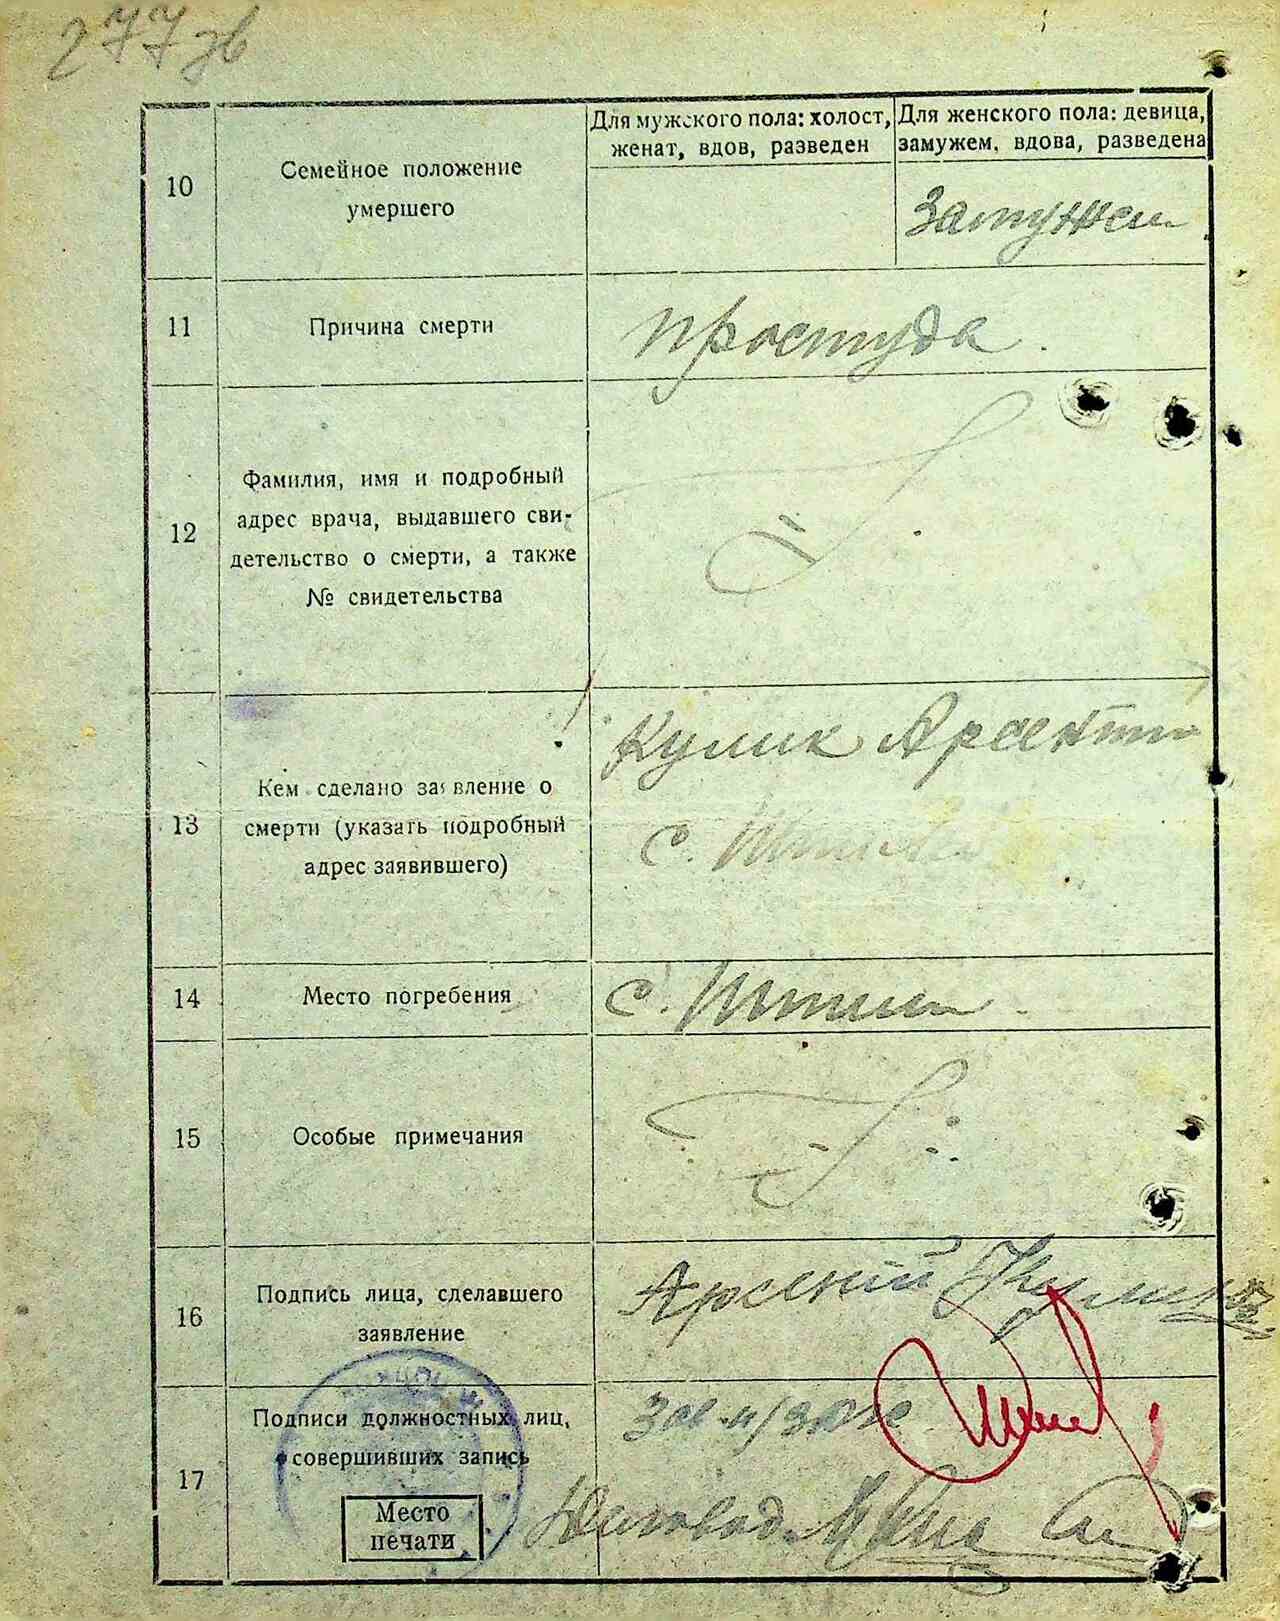 277 зв
10
Семейное положение
умершего
Для мужского пола: холост,
женат, вдов, разведен
Для женского пола: девица,
замужем, вдова, разведена
Замужем
11
Причина смерти
простуда.
12
Фамилия, имя и подробный
адрес врача, выдавшего сви-
детельство о смерти, а также
№ свидетельства
13
Кем сделано заявление о
смерти (указать подробный
адрес заявившего)
Кулик Арсентий
с.
14
Место погребения
с.
15
Особые примечания
16
Подпись лица, сделавшего
заявление
Арсений Кулик
17
Подписи должностных лиц,
совершивших запись
Место
печати